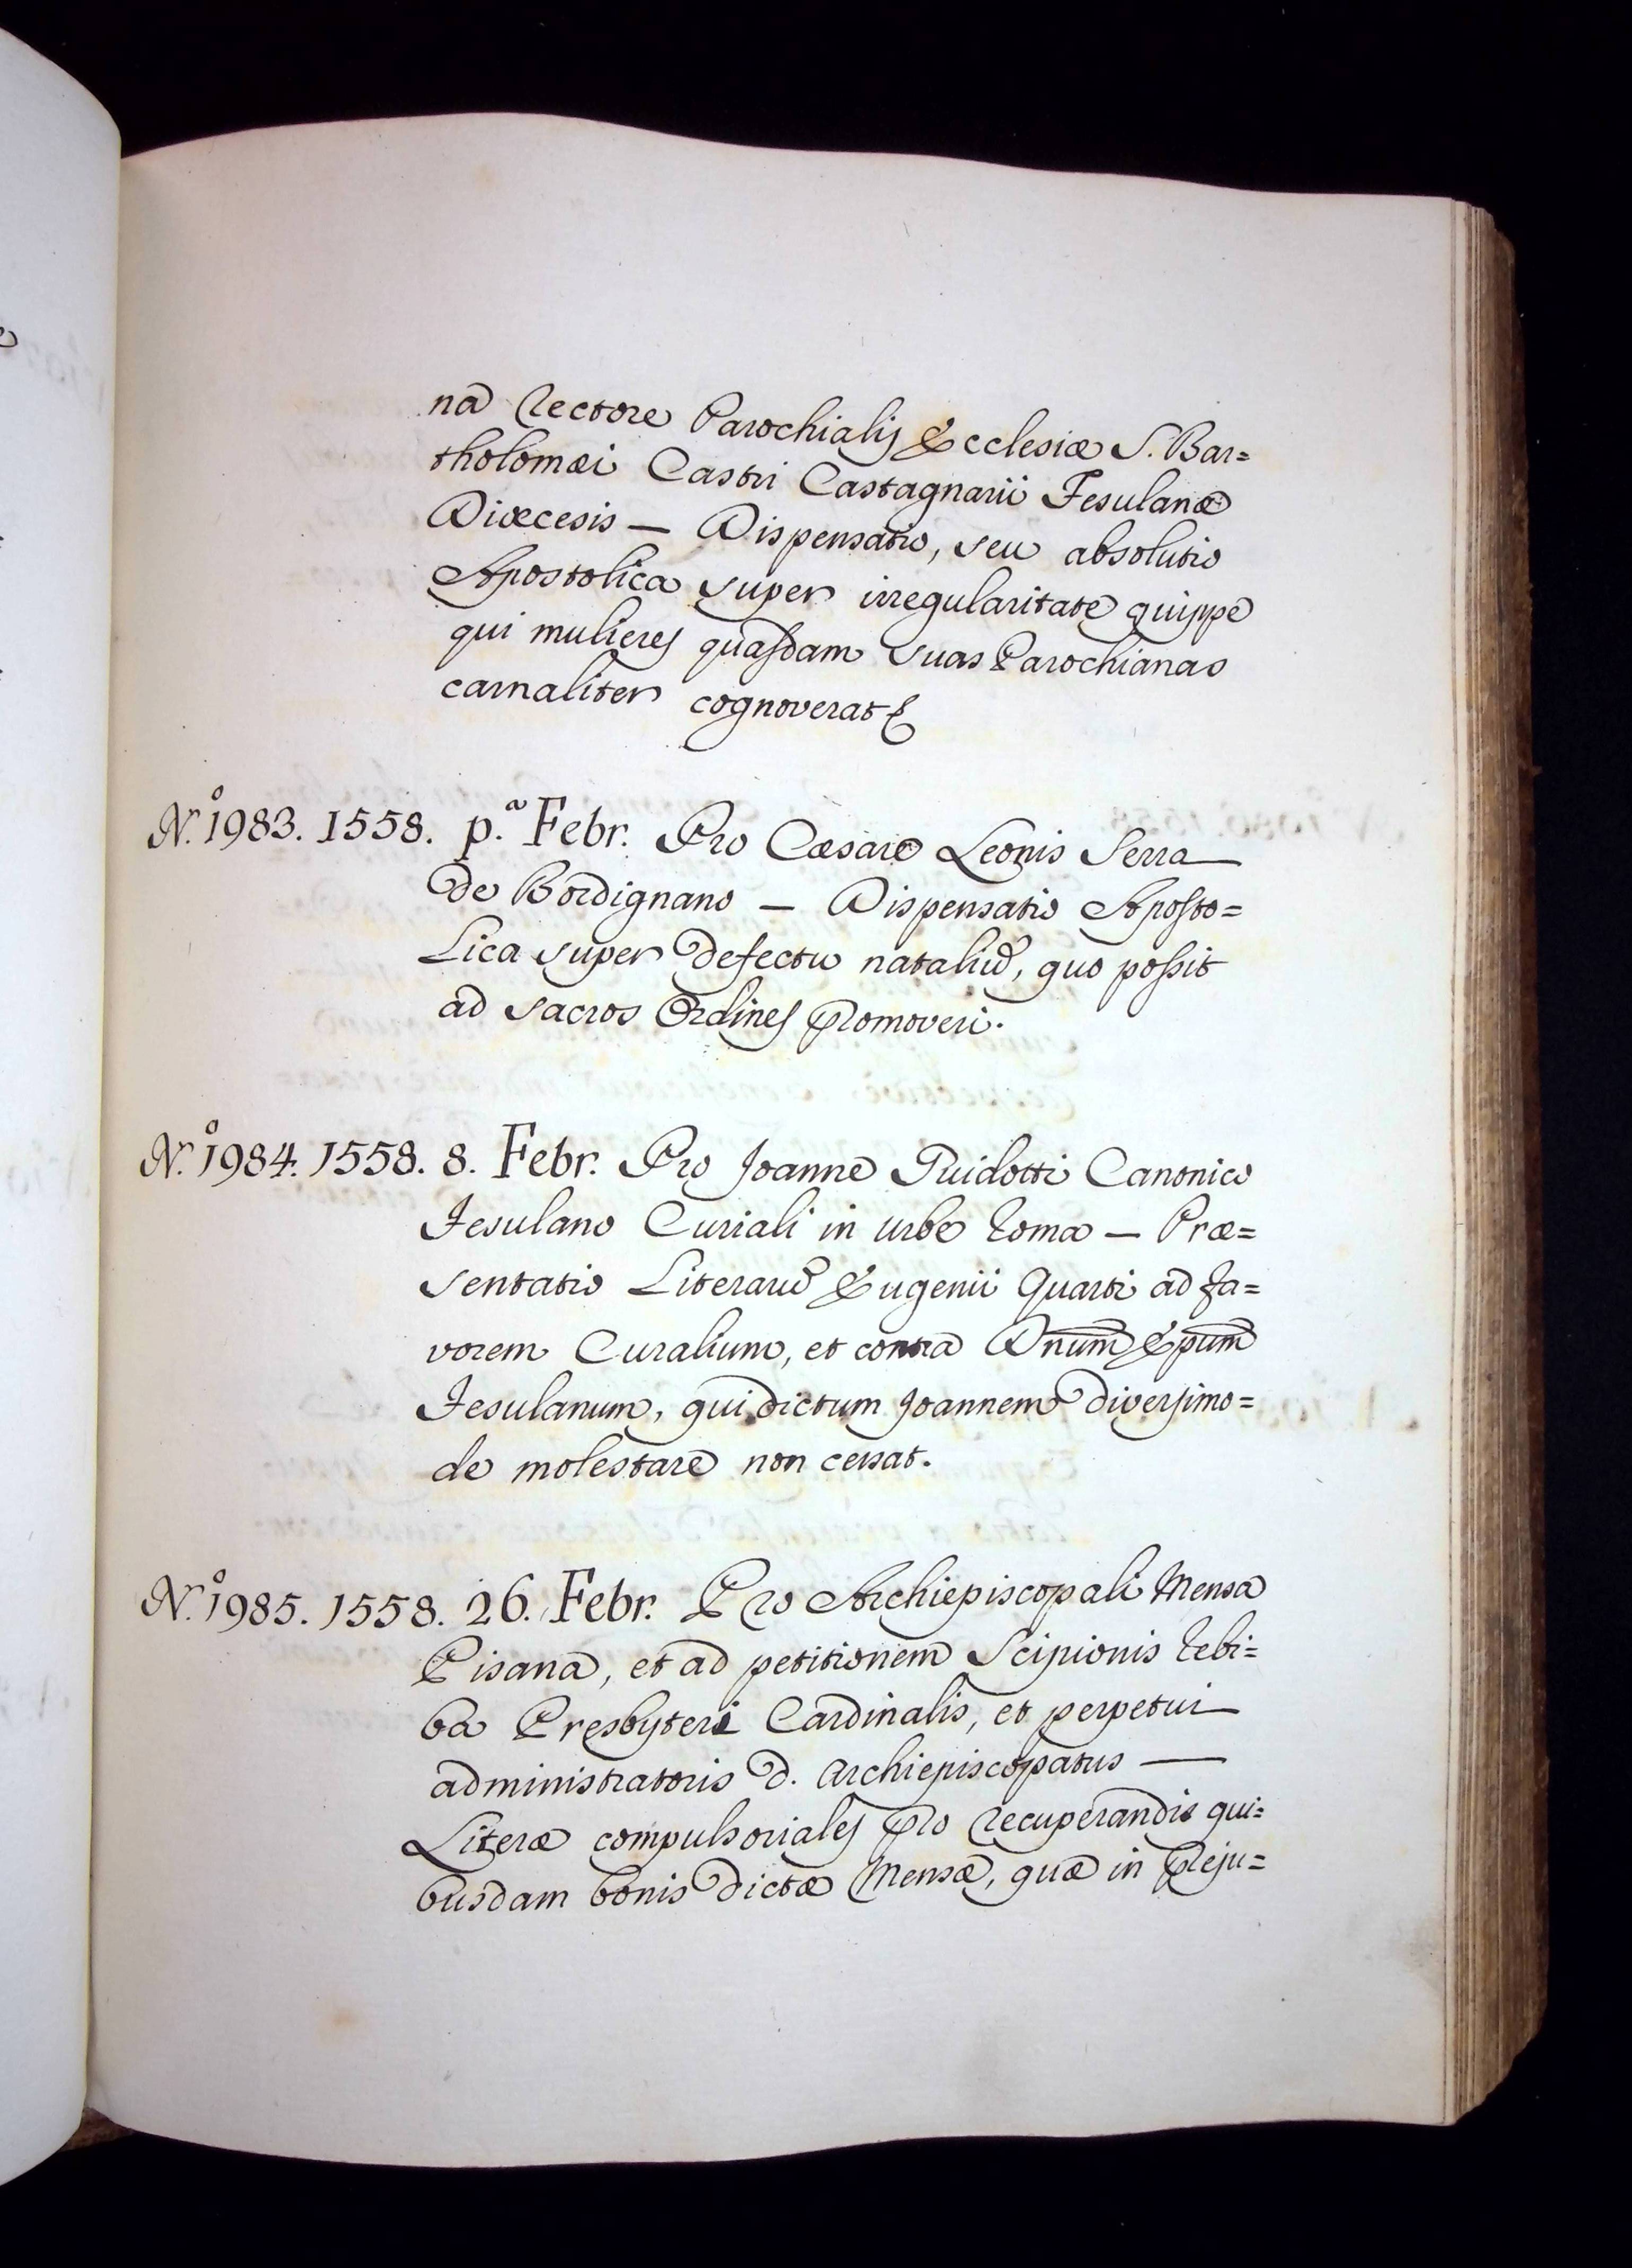 na Rectore Parochialis Ecclesiæ S. Bar=
tholomæi Castri Castagnarii Fesulanæ
Diœcesis — Dispensatio, seu absolutio
Apostolica super irregularitate quippe
qui mulieres quasdam suas Parochianas
carnaliter cognoverat
N.º 1983. 1558. p.ª Febr. Pro Cæsare Leonis Serra
de Bordignano — Dispensatio Aposto=
lica super defectu nataliũ, quo possit
ad sacros Ordines promoveri.
N.º 1984. 1558. 8. Febr. Pro Joanne Guidotti Canonico
Fesulano Curiali in urbe Roma — Præ=
sentatio Literarũ Eugenii Quarti ad fa=
vorem Curalium, et contra Dnum Epum
Fesulanum, qui dictum Joannem diversimo=
de molestare non cessat.
N.º 1985. 1558. 26. Febr. Pro Archiepiscopali Mensa
Pisana, et ad petitionem Scipionis Rebi=
ba Presbyteri Cardinalis, et perpetui
administratoris d. Archiepiscopatus —
Literæ compulsoriales pro recuperandis qui=
busdam bonis dictæ Mensæ, quæ in preju=